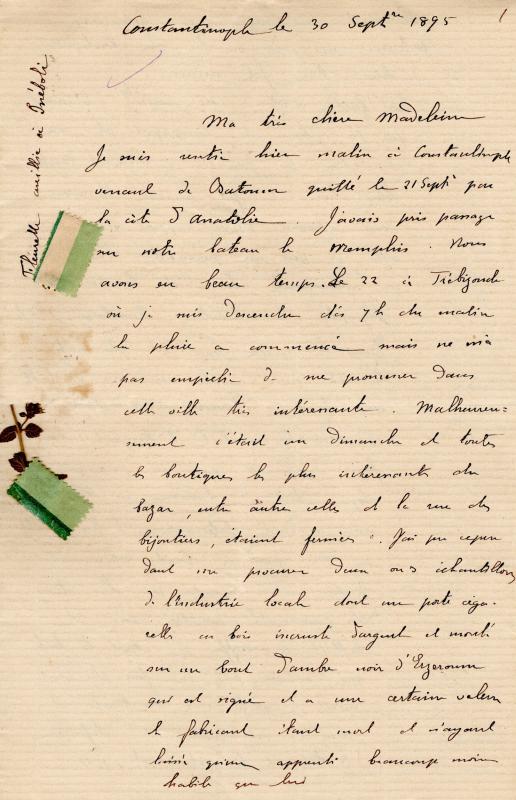 1
Constantinople le 30 Septre 1895
Fleurette cueillie à Inéboli
Ma très chère Madeleine
Je suis rentré hier matin à Constantinople
venant de Batoum quitté le 21 Sept par
la côte d'Anatolie. J'avais pris passage
sur notre bateau le Memphis. Nous
avons eu beau temps. Le 22 à Trébizonde
où je suis descendu dès 7h du matin
la pluie a commencé mais ne m'a
pas empêché de me promener dans
cette ville très intéressante. Malheureu=
sement c'était un dimanche et toutes
les boutiques les plus intéressantes du
bazar, entre autres celles de la rue des
bijoutiers, étaient fermées. J'ai pu cepen
dant me procurer deux ou 3 échantillons
de l'industrie locale dont un porte ciga-
rettes en bois incrusté d'argent et monté
sur un bout d'ambre noir d'Erzeroum
qui est signé et a une certaine valeur
le fabricant étant mort et n'ayant
laissé qu'un apprenti beaucoup moins
habile que lui